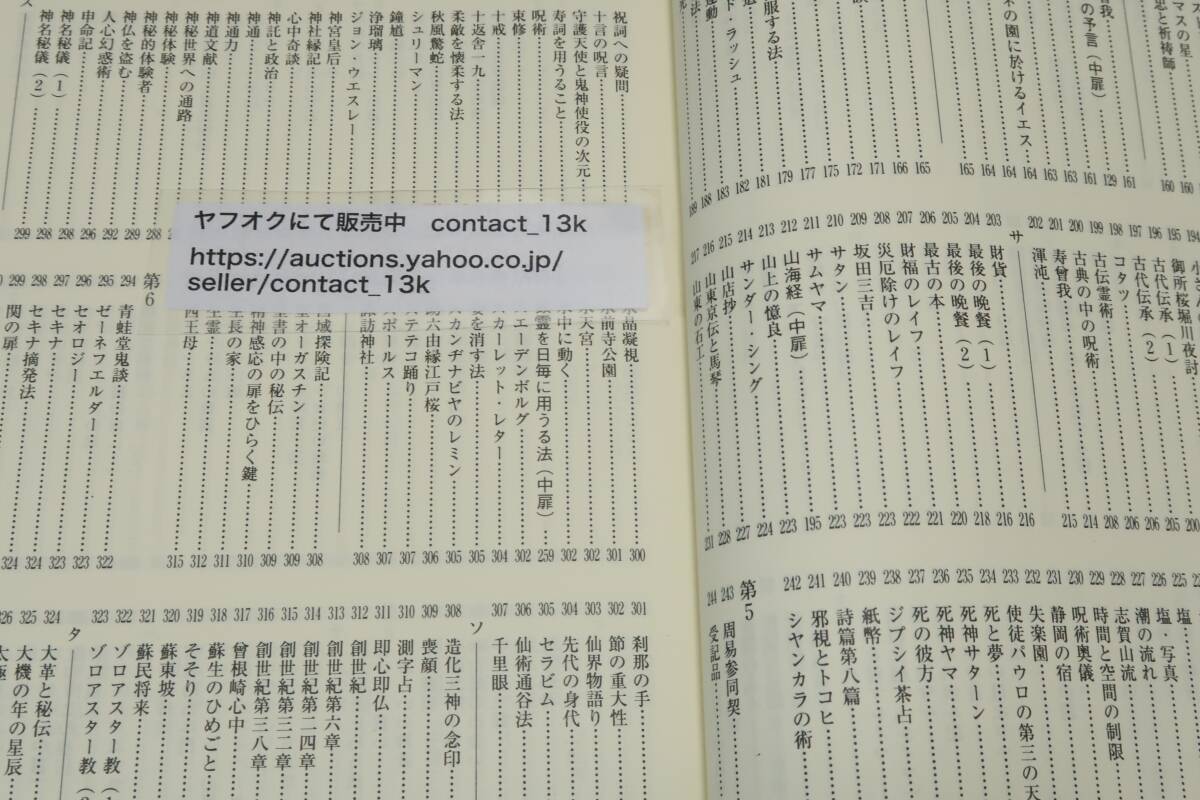 マスの星
忠と祈祷師
我
の予言(中扉)
の園に於けるイエス
服する法
ド・ラッシュ
運動
法
160
160
161
129
161
163
163
164
164
165
165
166
171
172
175
177
179
181
182
183
188
189
194 小
195 御所桜堀川夜討
196 古代伝承(1)
197 古代伝承(2)
198 コタツ
199 古伝霊術
200 古典の中の呪術
201 寿曾我
202 渾沌
200
205
206
206
208
214
215
サ
203 財貨
204 最後の晩餐(1)
205 最後の晩餐(2)
206 最古の本
207 財福のレイフ
208 災厄除けのレイフ
209 坂田三吉
210 サタン
211 サムヤマ
212 山海経(中扉)
213 山上の憶良
214 サンダー・シング
215 山店抄
216 山東京伝と馬琴
217 山東の石工
216
216
218
220
221
222
223
223
223
195
223
224
227
228
231
225 塩
226 塩・写真
227 潮の流れ
228 志賀山流
229 時間と空間の制限
230 呪術奥儀
231 静岡の宿
232 失楽園
233 使徒パウロの第三の天
234 死と夢
235 死神サターン
236 死神ヤマ
237 死の彼方
238 ジプシイ茶占
239 紙幣
240 詩篇第八篇
241 邪視とトコヒ
242 シヤンカラの術
第5
243 周易参同契
244 受記品
祝詞への疑問
十言の呪言
守護天使と鬼神使役の次元
寿詞を用うること
呪術
束修
十戒
十返舎一九
柔敵を懐柔する法
秋風驚蛇
シュリーマン
鐘馗
浄瑠璃
ジョン・ウエスレー
神宮皇后
神社縁記
心中奇談
神託と政治
神通
神通力
神道文献
神秘世界への通路
神秘体験
神秘的体験者
神仏を盗む
人心幻惑術
申命記
神名秘儀(1)
神名秘儀(2)
288
289
292
296
298
298
299
ス
ヤフオクにて販売中 contact_13k
https://auctions.yahoo.co.jp/
seller/contact_13k
晶凝視
前寺公園
天宮
中に動く
霊を日毎に用うる法(中扉)
エーデンボルグ
カーレット・レター
を消す法
カンヂナビヤのレミン
六由縁江戸桜
テテコ踊り
ポールス
諏訪神社
300
301
302
302
259
302
304
305
305
306
307
307
308
域探険記
オーガスチン
書の中の秘伝
精神感応の扉をひらく鍵
生長の家
生霊
西王母
308
309
309
310
311
312
315
第6
294 青蛙堂鬼談
295 ゼーネフエルダー
296 セオロジー
297 セキナ
298 セキナ摘発法
299 関の扉
322
323
323
324
324
301 刹那の手
302 節の重大性
303 仙界物語り
304 先代の身代
305 セラビム
306 仙術通谷法
307 千里眼
ソ
308 造化三神の念印
309 喪顔
310 測字占
311 即心即仏
312 創世紀
313 創世紀第六章
314 創世紀第二四章
315 創世紀第三二章
316 創世紀第三八章
317 曾根崎心中
318 蘇生のひめごと
319 そそり
320 蘇東坡
321 蘇民将来
322 ゾロアスター教(1
323 ゾロアスター教(2
タ
324 大革と秘伝
325 大機の年の星辰
326